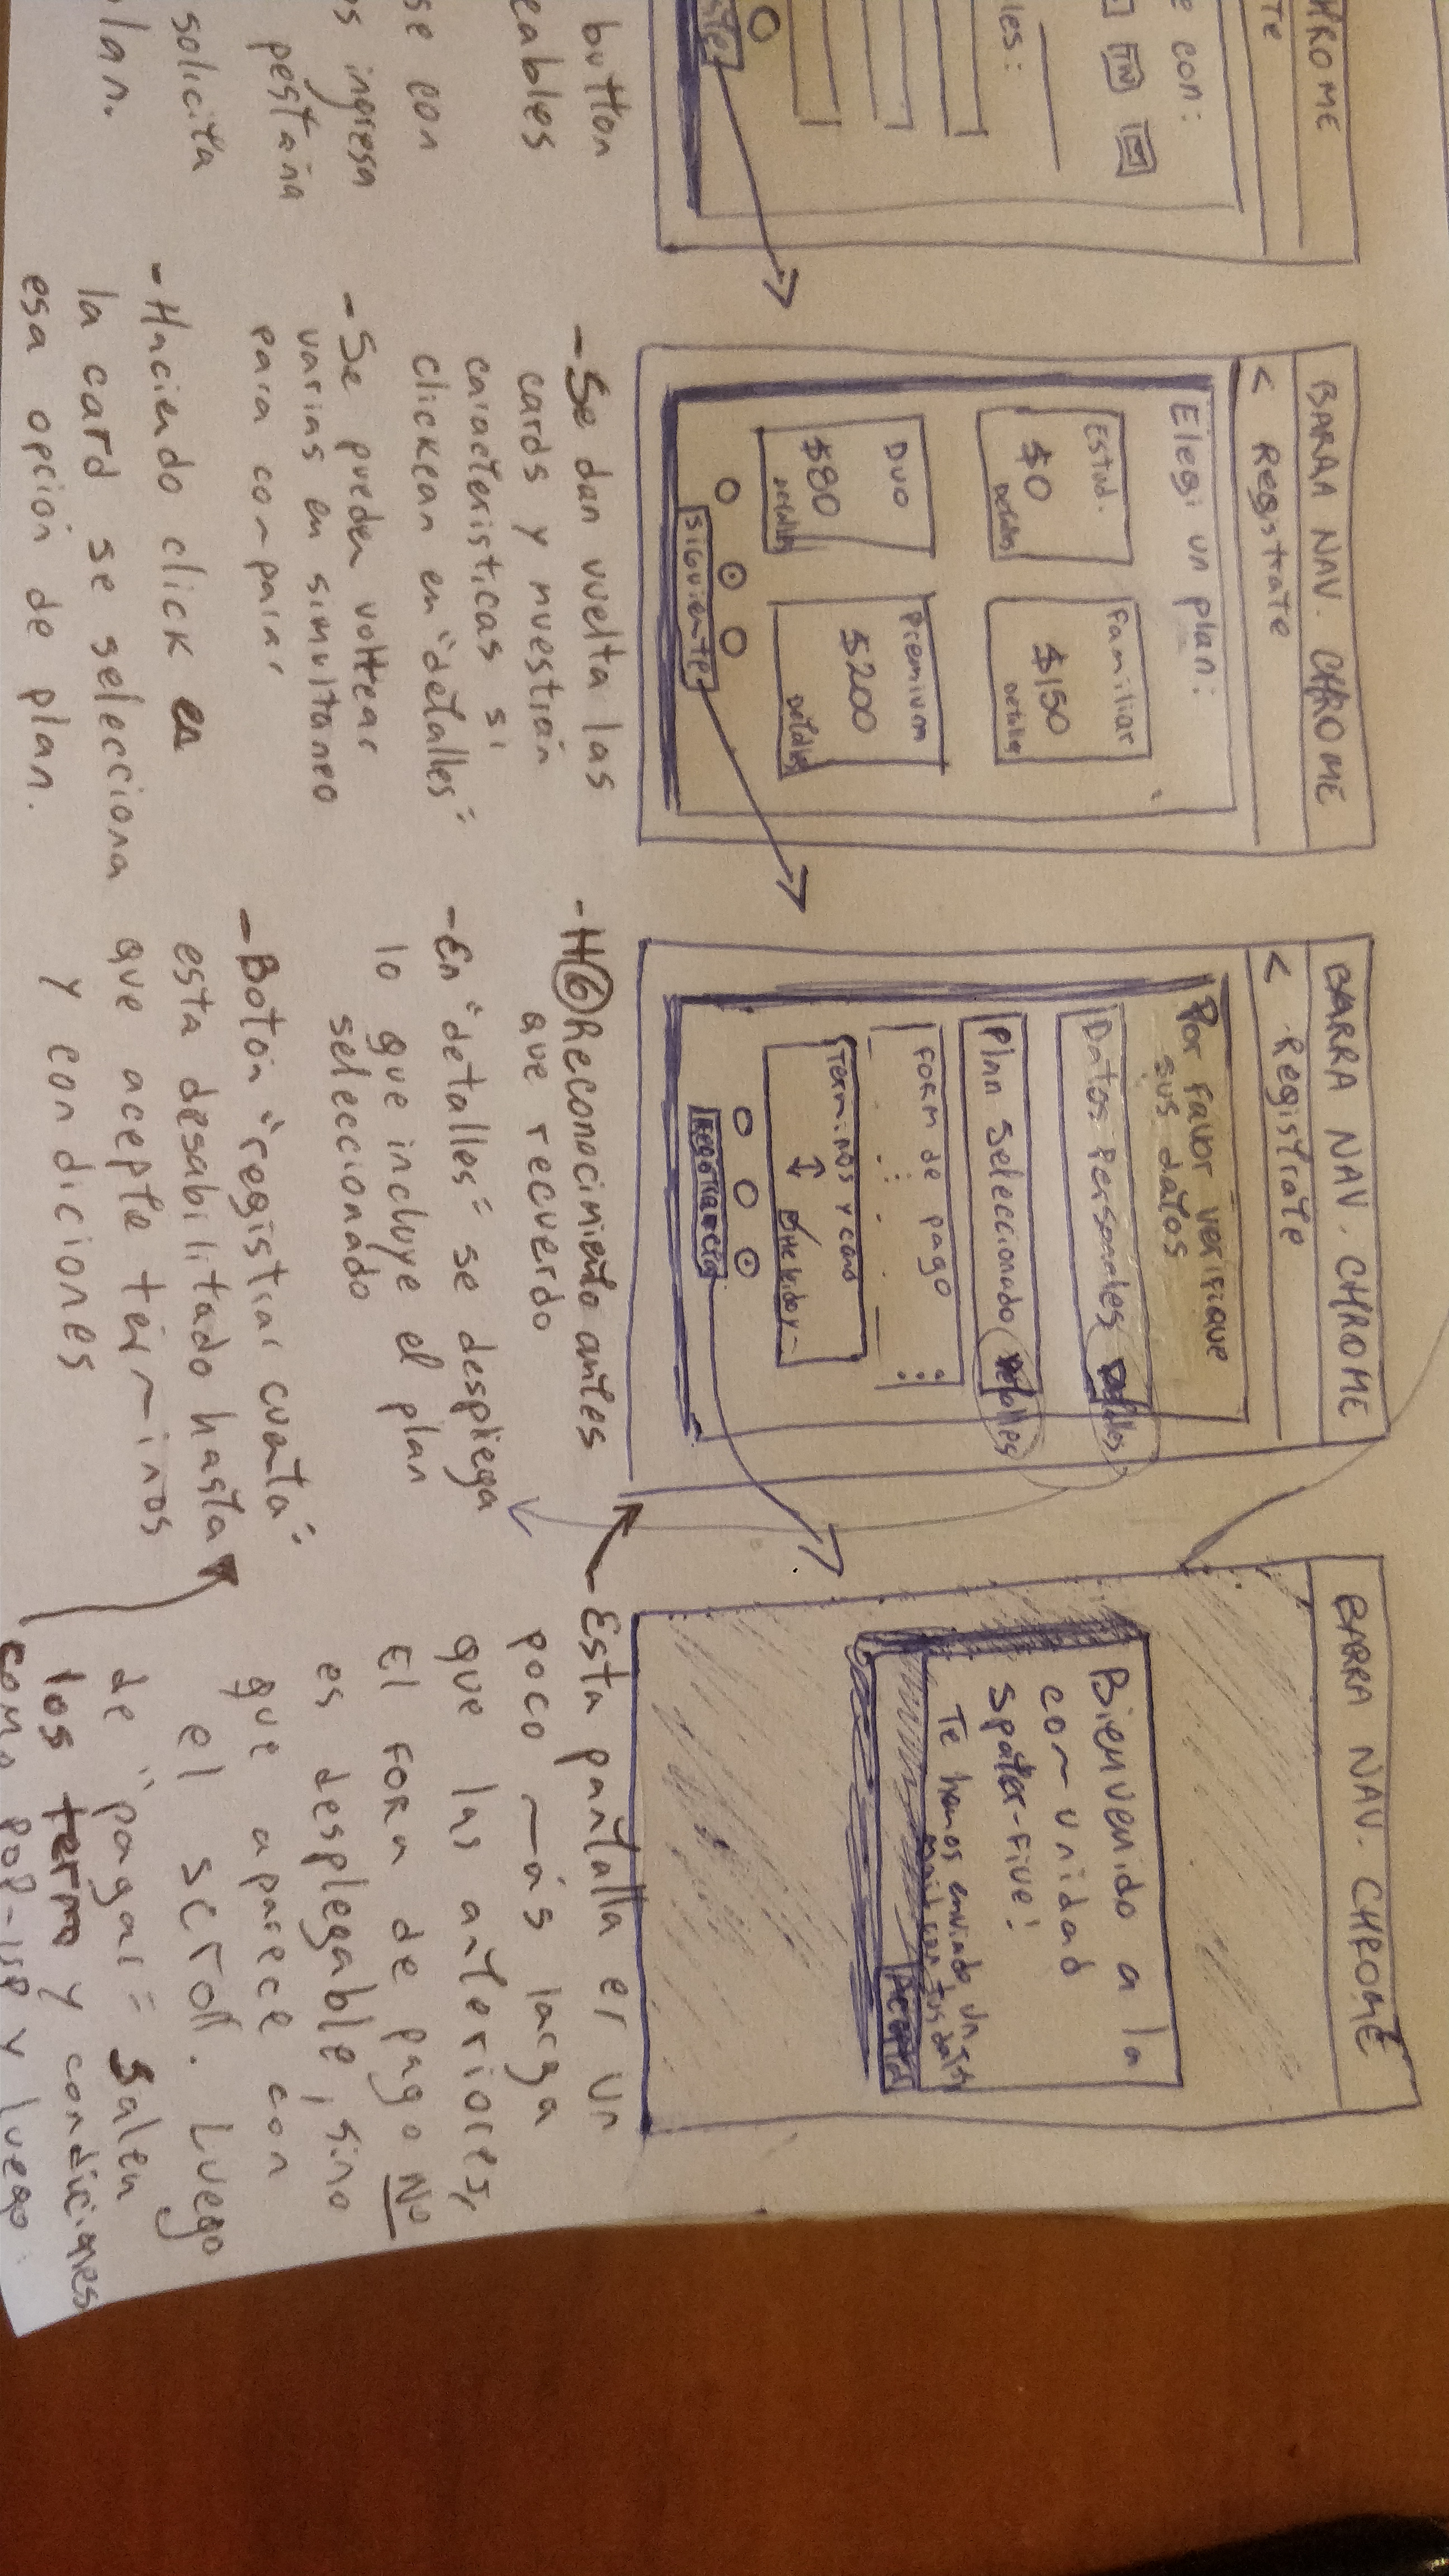 HROME
Te
e con:
TW
les:
button
eables
se con
os ingresa
pestaña
solicita
lan.
BARRA NAV. CHROME
< Registrate
Elegi un plan:
Estud.
$0
Detalles
Familiar
$150
Detalles
Duo
$80
Detalles
Premium
$200
Detalles
siguiente
- Se dan vuelta las
cards y muestran
caracteristicas si
clickean en "detalles"
- Se pueden voltear
varias en simultaneo
para comparar
- Haciendo click en
la card se selecciona
esa opción de plan.
BARRA NAV. CHROME
< Registrate
Por favor verifique
sus datos
Datos Personales Detalles
Plan Seleccionado Detalles
FORM de pago
Terminos y cond
He leido y
- H⑥ Reconocimiento antes
que recuerdo
- En "detalles" se despliega
lo que incluye el plan
seleccionado
- Botón "registrar cuenta"
esta desabilitado hasta
que acepte términos
y condiciones
BARRA NAV. CHROME
Bienvenido a la
comunidad
Spoter-Five!
Te hemos enviado un
mail con tus datos
Aceptar
- Esta pantalla es un
poco más larga
que las anteriores,
El FORM de pago NO
es desplegable, sino
que aparece con
el scroll. Luego
de "pagar" salen
los term y condiciones
como POP-UP y luego